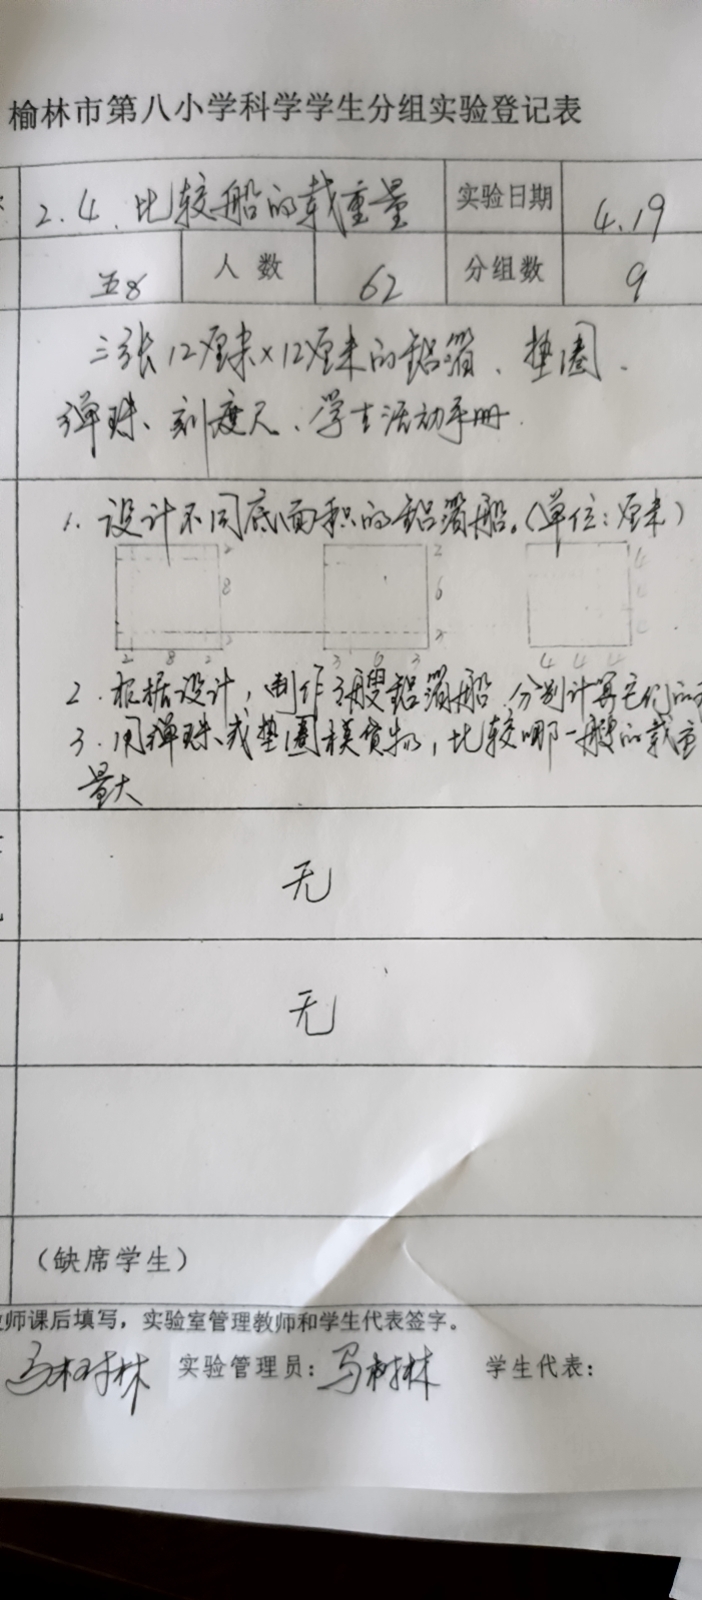 榆林市第八小学科学学生分组实验登记表
2.4. 比较船的载重量 实验日期 4.19
五8 人数 62 分组数 9
三张12厘米×12厘米的铝箔、垫圈、
弹珠、刻度尺、学生活动手册.
1. 设计不同底面积的铝箔船。(单位:厘米)
2 2 4
8 6 4
2 2 4
2 8 2 3 6 3 4 4 4
2. 根据设计,制作3艘铝箔船.分别计算它们的
3. 用弹珠、或垫圈模货物,比较哪一艘的载重
量大
无
无
(缺席学生)
师课后填写,实验室管理教师和学生代表签字。
马树林 实验管理员:马树林 学生代表: